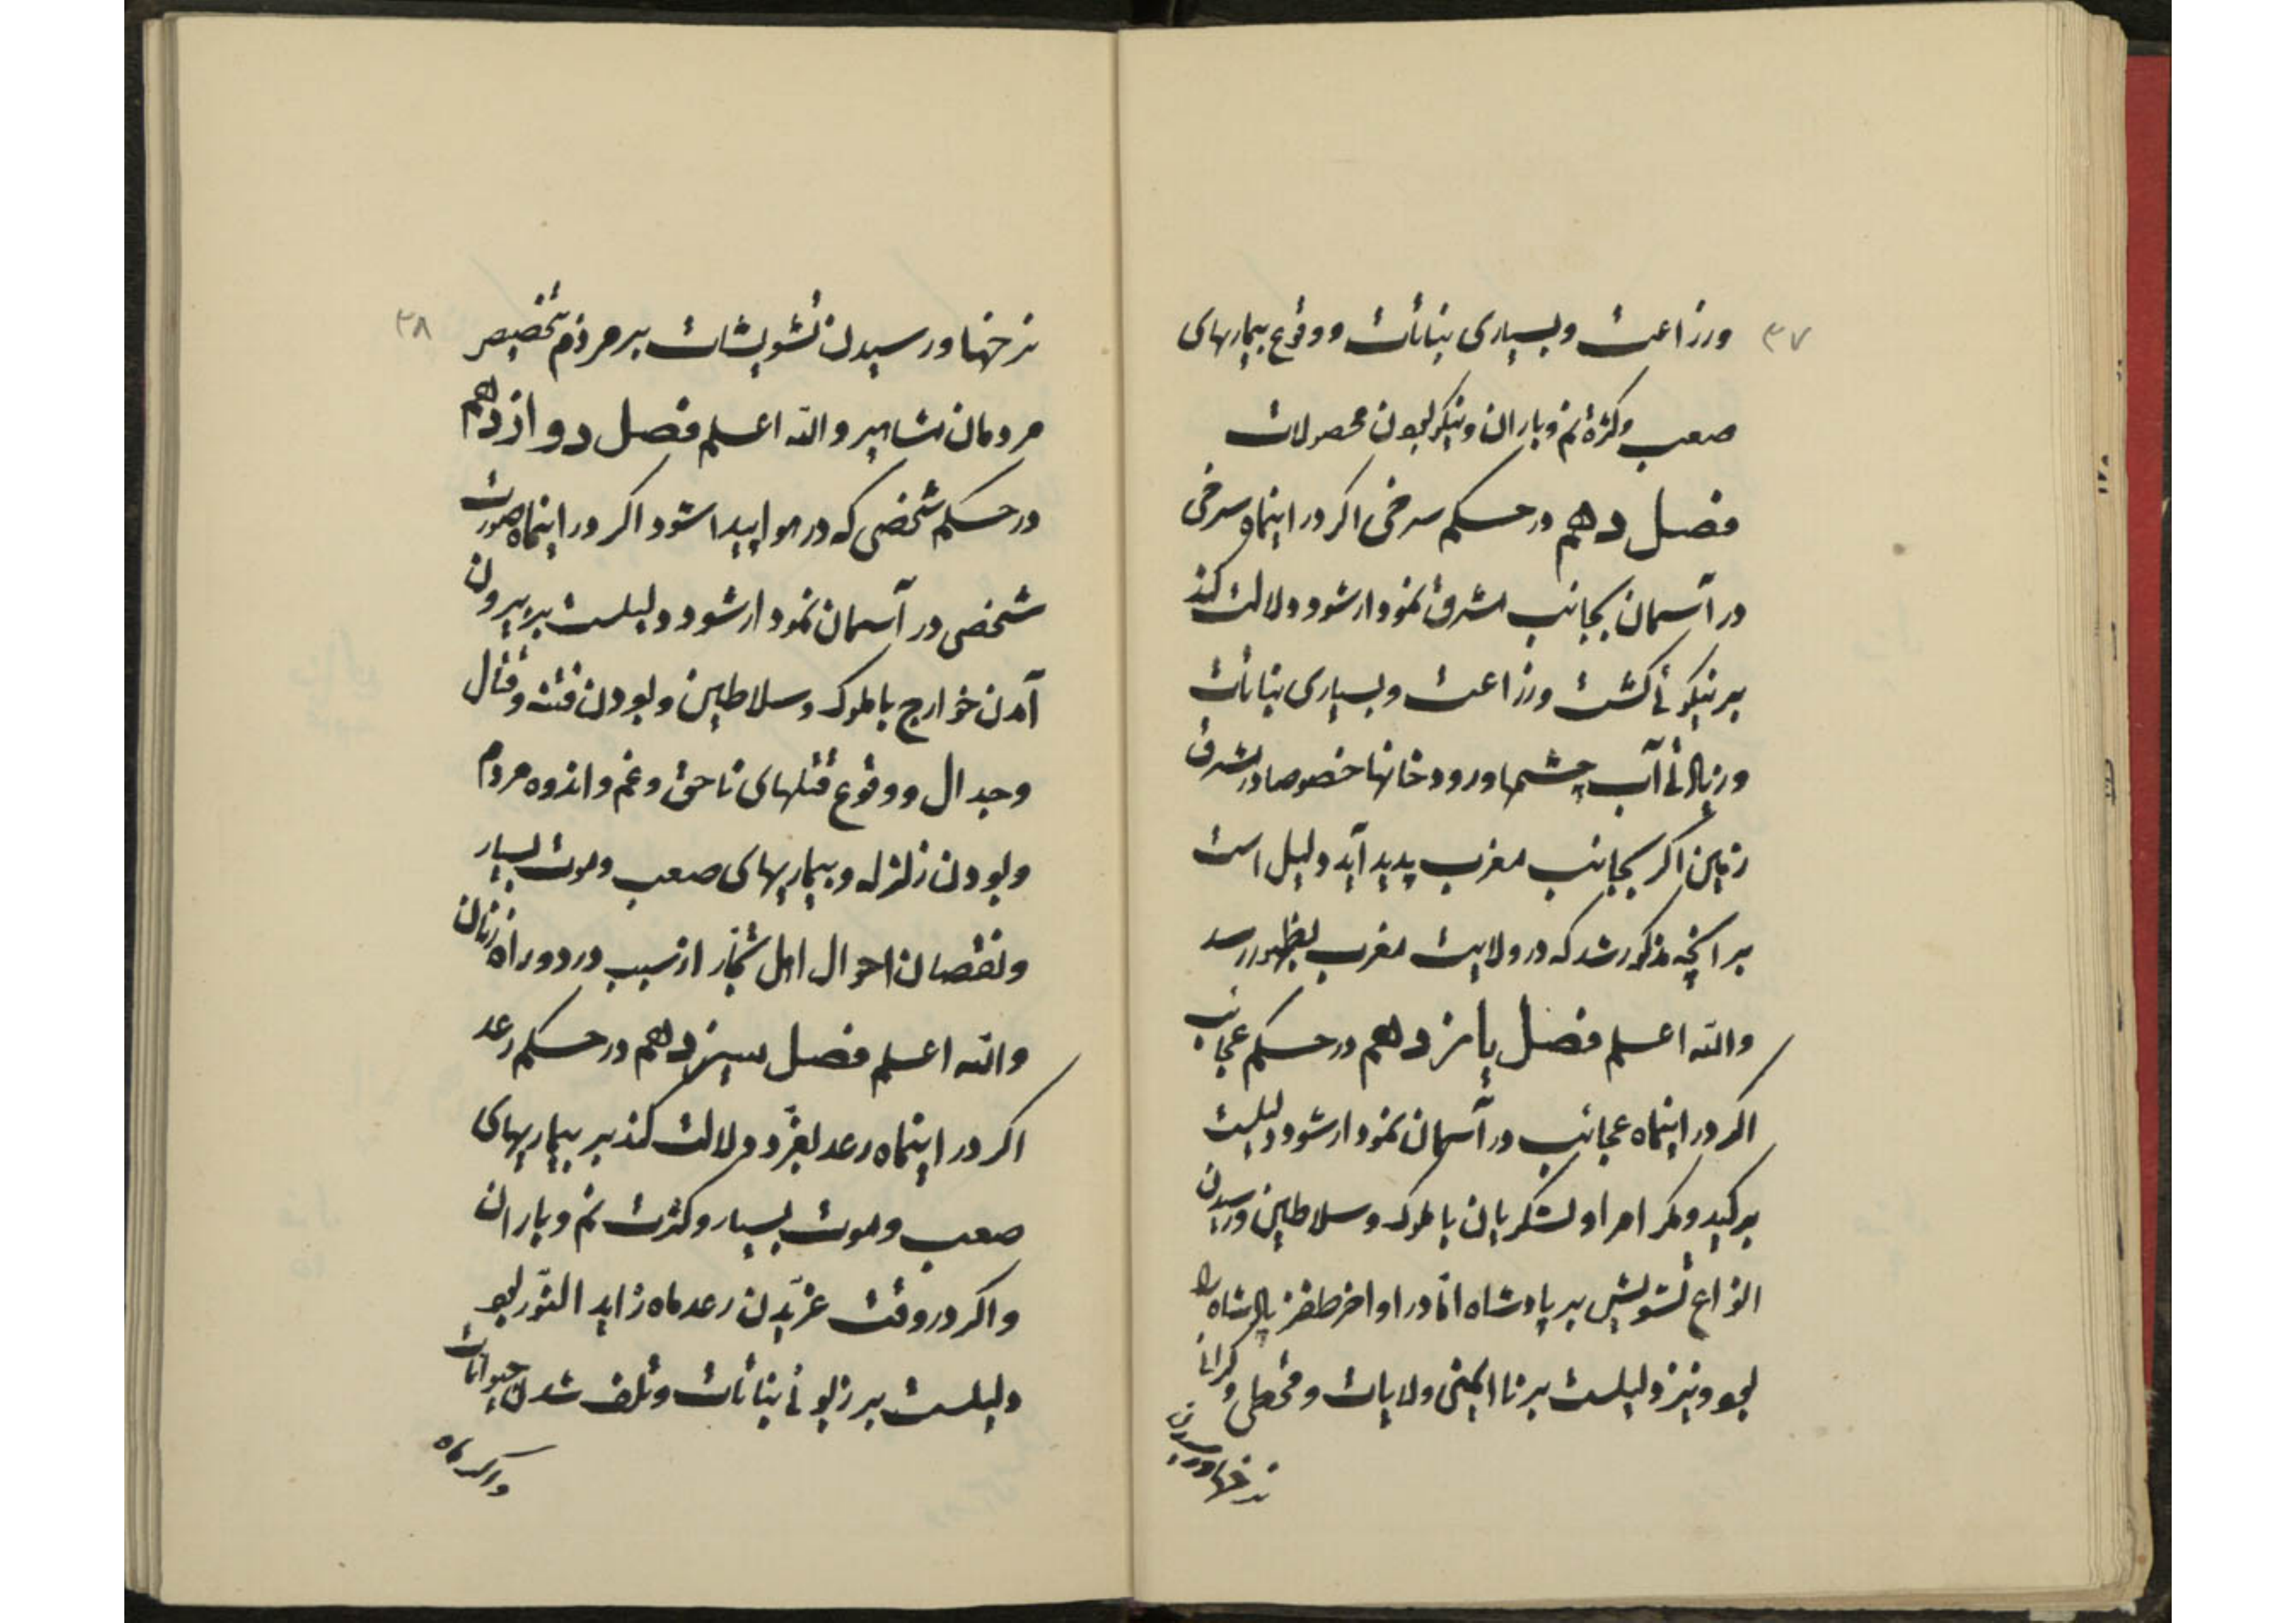 ۳۷
وزراعت وبسیاری نباتات ووقوع بیماریهای
صعب وکثرة نم وباران ونیکو بودن محصولات
فصل دهم در حکم سرخی اکر در اینماه سرخی
در آسمان بجانب مشرق نمودار شود دلالت کند
بر نیکوئی کشت وزراعت وبسیاری نباتات
وزیادتی آب چشمها ورودخانها خصوصا در مشرق
زمین اکر بجانب مغرب پدید آید دلیل است
بر آنچه مذکور شد که در ولایت مغرب بظهور رسد
والله اعلم فصل یانزدهم در حکم عجایب
اکر در اینماه عجایب در آسمان نمودار شود دلیلست
بر کید ومکر امرا ولشکریان با ملوک وسلاطین ورسیدن
انواع تشویش بر پادشاه امّا در اواخر ظفر پادشاه را
بود ونیز دلیلست بر نا ایمنی ولایات وقحطی وکرانی
نرخها ورسیدن
۳۸
نرخها ورسیدن تشویشات بر مردم تخصیص
مردمان مشاهیر والله اعلم فصل دوازدهم
در حکم شخصی که در هوا پیدا شود اکر در اینماه صورت
شخصی در آسمان نمودار شود دلیلست بر بیرون
آمدن خوارج با ملوک وسلاطین وبودن فتنه وقتال
وجدال ووقوع قتلهای ناحق وغم واندوه مردم
وبودن زلزله وبیماریهای صعب وموت بسیار
ونقصان احوال اهل تجّار از سبب درد وراه زنان
والله اعلم فصل سیزدهم در حکم رعد
اکر در اینماه رعد بغرّد دلالت کند بر بیماریهای
صعب وموت بسیار وکثرت نم وباران
واکر در وقت غرّیدن رعد ماه زاید النّور بود
دلیلست بر زبونی نباتات وتلف شدن حیوانات
واکر ماه